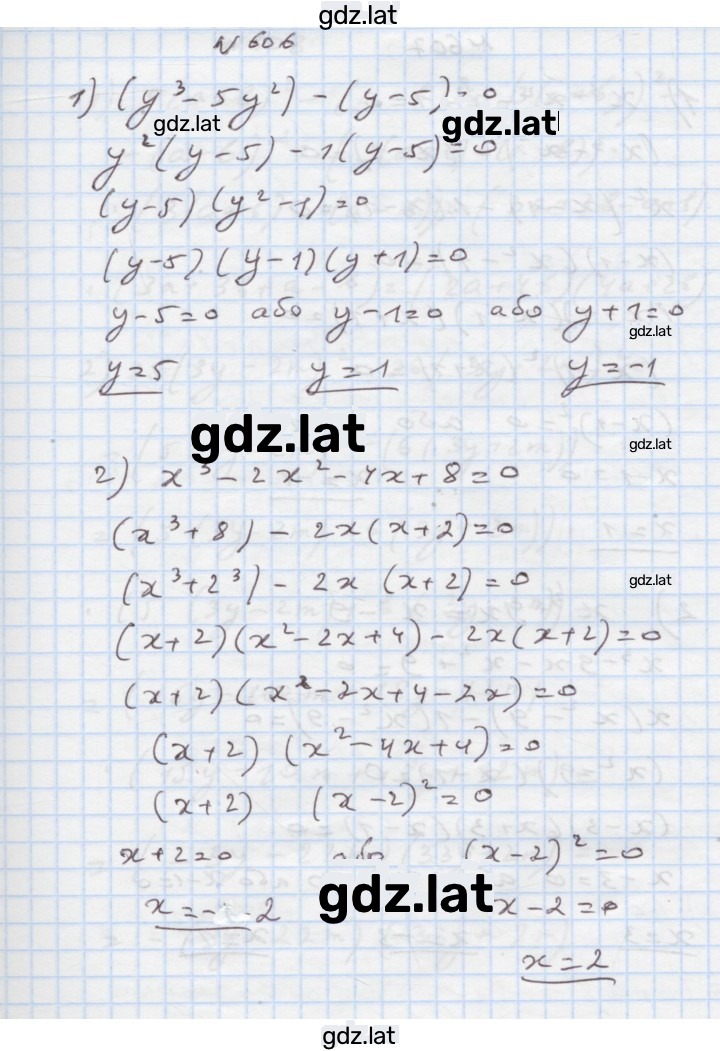 gdz.lat
№ 606
1) (y³ - 5y²) - (y - 5) = 0
gdz.lat gdz.lat
y² (y - 5) - 1 (y - 5) = 0
(y - 5) (y² - 1) = 0
(y - 5) (y - 1) (y + 1) = 0
y - 5 = 0 або y - 1 = 0 або y + 1 = 0
gdz.lat
y = 5 y = 1 y = -1
gdz.lat gdz.lat
2) x³ - 2x² - 4x + 8 = 0
(x³ + 8) - 2x (x + 2) = 0
(x³ + 2³) - 2x (x + 2) = 0 gdz.lat
(x + 2) (x² - 2x + 4) - 2x (x + 2) = 0
(x + 2) (x² - 2x + 4 - 2x) = 0
(x + 2) (x² - 4x + 4) = 0
(x + 2) (x - 2)² = 0
x + 2 = 0 або (x - 2)² = 0
gdz.lat
x = - 2 x - 2 = 0
x = 2
gdz.lat